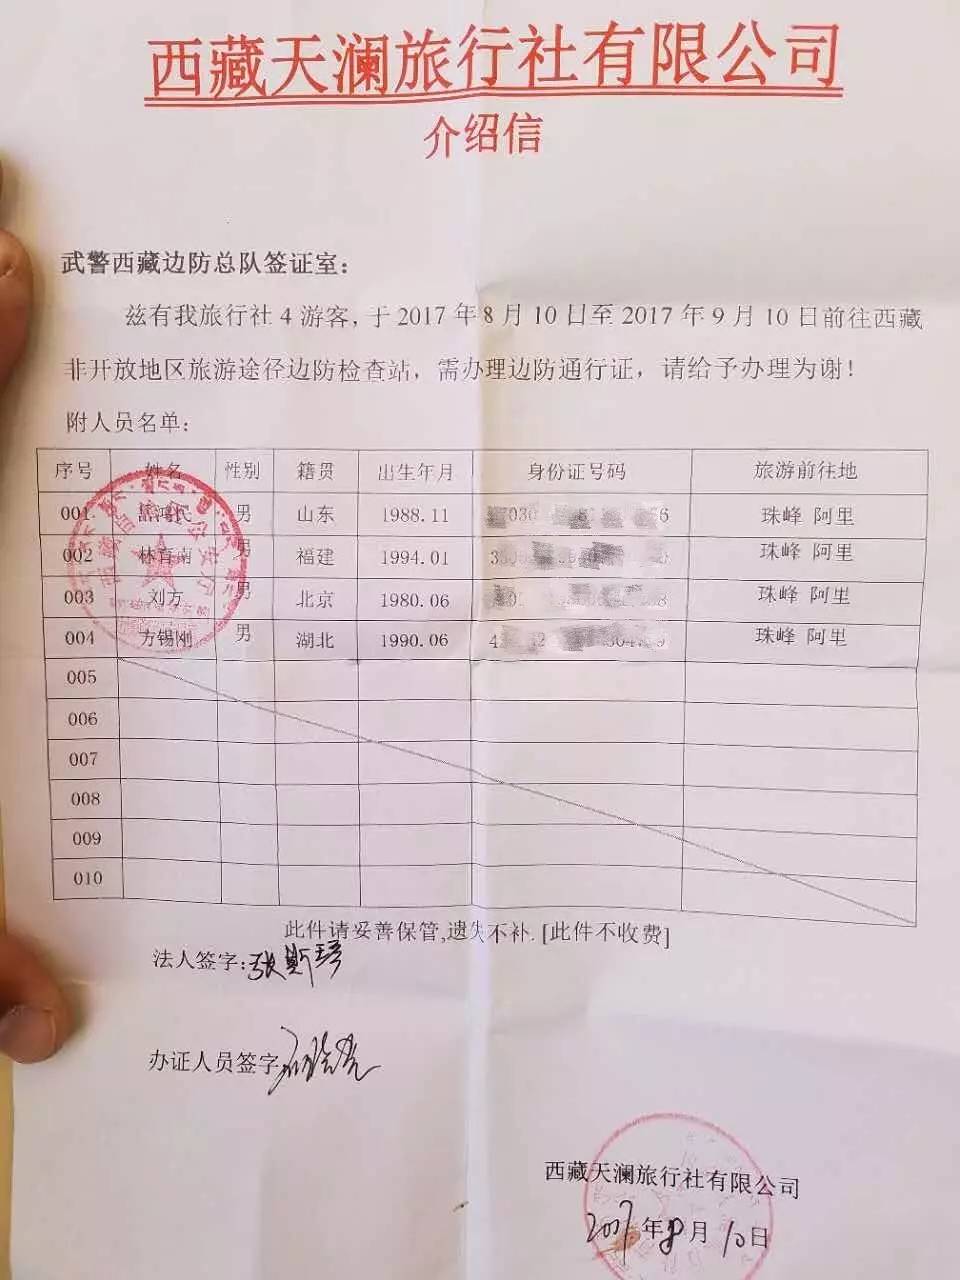 西藏天澜旅行社有限公司
介绍信
武警西藏边防总队签证室：
兹有我旅行社4游客，于2017年8月10日至2017年9月10日前往西藏
非开放地区旅游途径边防检查站，需办理边防通行证，请给予办理为谢！
附人员名单：
序号 姓名 性别 籍贯 出生年月 身份证号码 旅游前往地
001 鸿民 男 山东 1988.11 珠峰 阿里
002 林育南 男 福建 1994.01 珠峰 阿里
003 刘方 男 北京 1980.06 珠峰 阿里
004 方锡刚 男 湖北 1990.06 珠峰 阿里
005
006
007
008
009
010
此件请妥善保管,遗失不补.[此件不收费]
法人签字:张斯琦
办证人员签字
西藏天澜旅行社有限公司
2017年8月10日